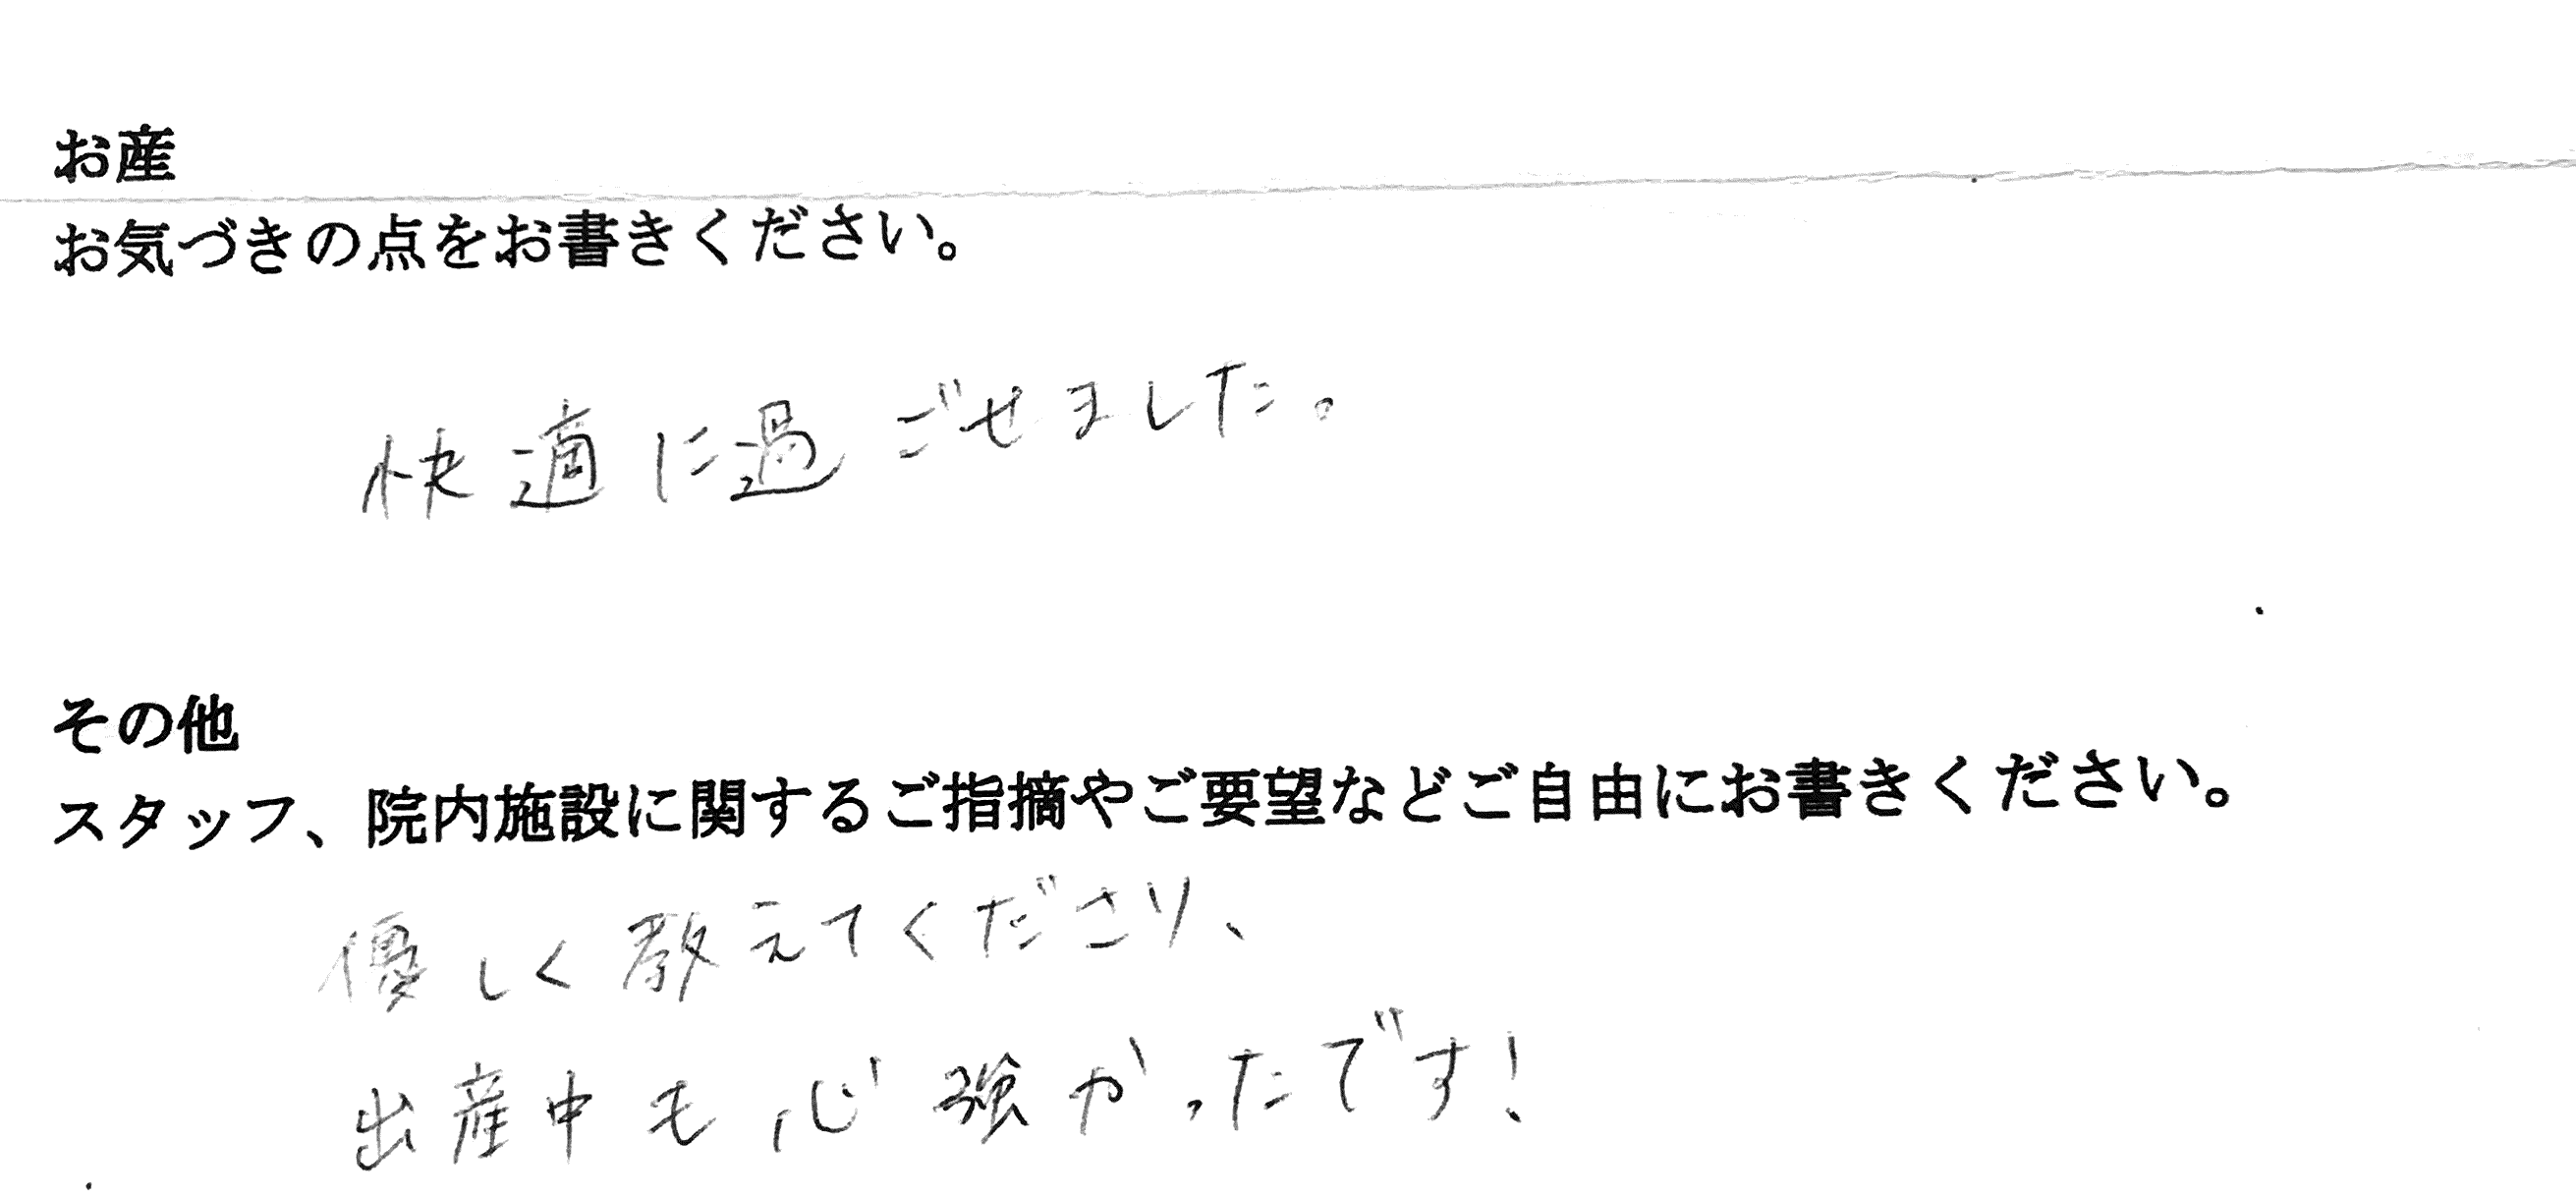 お産
お気づきの点をお書きください。
快適に過ごせました。
その他
スタッフ、院内施設に関するご指摘やご要望などご自由にお書きください。
優しく教えてくださり、
出産中も心強かったです!